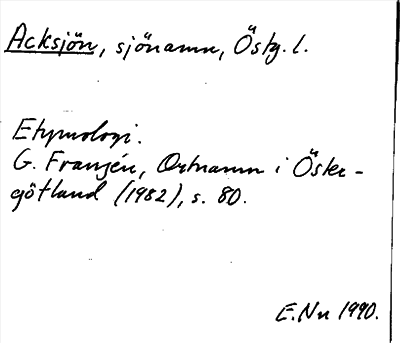 Acksjön, sjönamn, Östg. l.
Etymologi.
G. Franzén, Ortnamn i Öster-
götland (1982), s. 80.
E.Nn 1990.